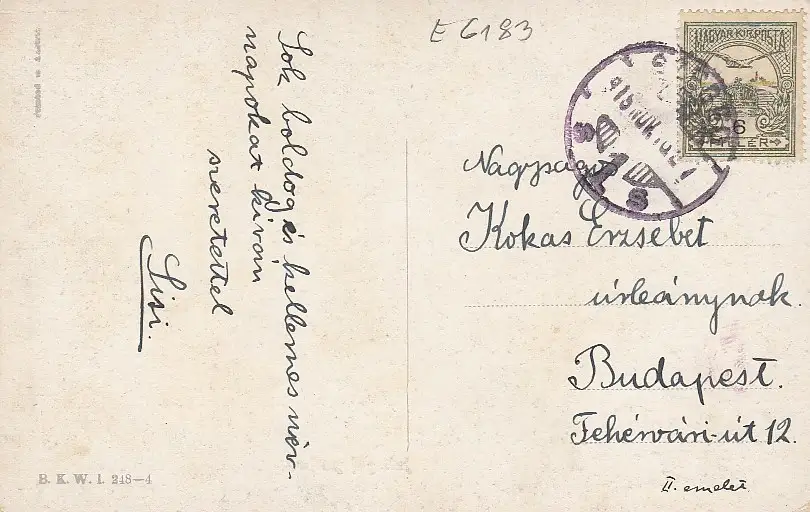 E 6183
MAGYAR KIR. POSTA
6
FILLÉR
Sok boldog és kellemes név-
napokat kíván
szeretettel
Sisi.
Nagyságos
Kokas Erzsébet
úrleánynak.
Budapest.
Fehérvári-út 12.
II. emelet
B. K. W. I. 248–4